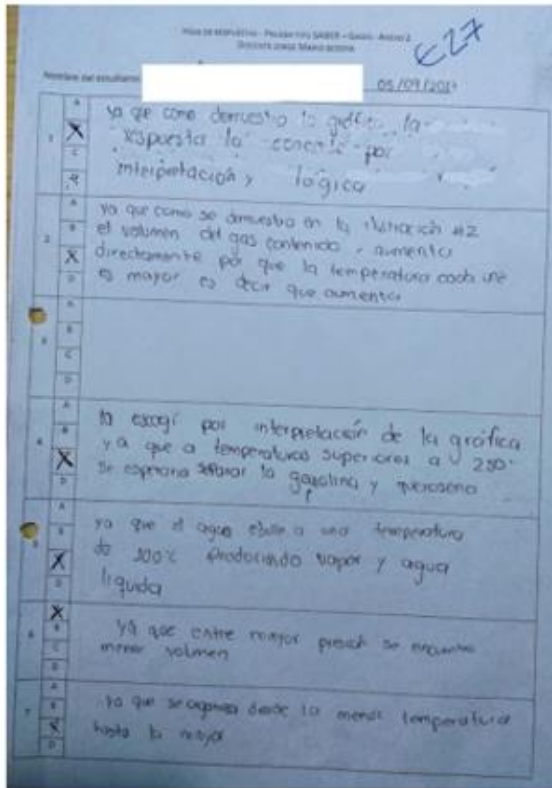 HOJA DE RESPUESTAS - PRUEBA TIPO SABER - GASES - ANEXO 2
DOCENTE JORGE MARIO BEDOYA
E27
Nombre del estudiante
05/09/201
1
A
X
C
ya que como demuestra la gráfica, la
respuesta la por
interpretación y lógica
2
A
B
X
D
ya que como se demuestra en la ilustración #2
el volumen del gas contenido aumenta
directamente por que la temperatura cada
es mayor es decir que aumenta
3
A
B
C
D
4
A
B
X
D
la escogí por interpretación de la gráfica
ya que a temperaturas superiores a 250°
se esperaría separar la gasolina y queroseno
5
A
B
X
D
ya que el agua ebulle a una temperatura
de 100°c produciendo vapor y agua
liquida
6
X
B
C
D
ya que entre mayor presión se encuentra
menor volumen
7
A
B
X
D
ya que se organiza desde la menor temperatura
hasta la mayor